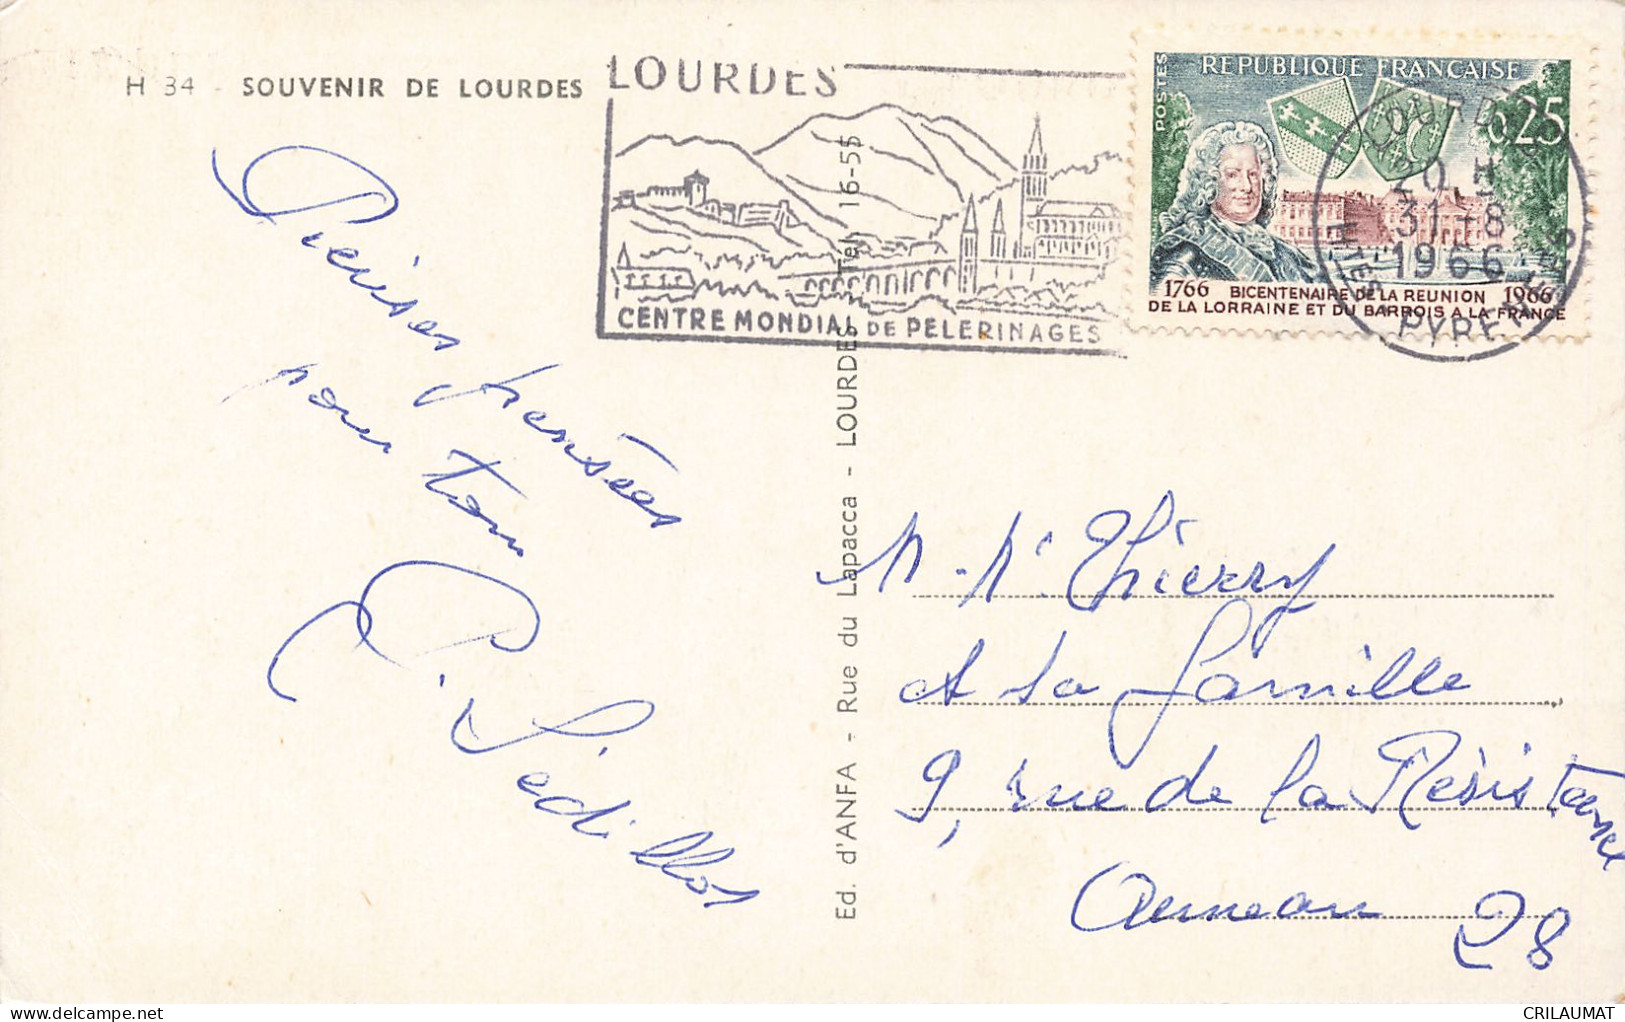 H 34 - SOUVENIR DE LOURDES
LOURDES
CENTRE MONDIAL DE PELERINAGES
POSTES
REPUBLIQUE FRANÇAISE
0,25
1766 BICENTENAIRE DE LA REUNION 1966
DE LA LORRAINE ET DU BARROIS A LA FRANCE
LOURDES
20 H
31-8
1966
HTES PYRENEES
Pieuses pensées
pour tous
C. Sédillot
Ed. d'ANFA - Rue du Lapacca - LOURDES Tél. 16-55
M. Mme Thierry
et la famille
9, rue de la Résistance
Auneau
28
CRILAUMAT